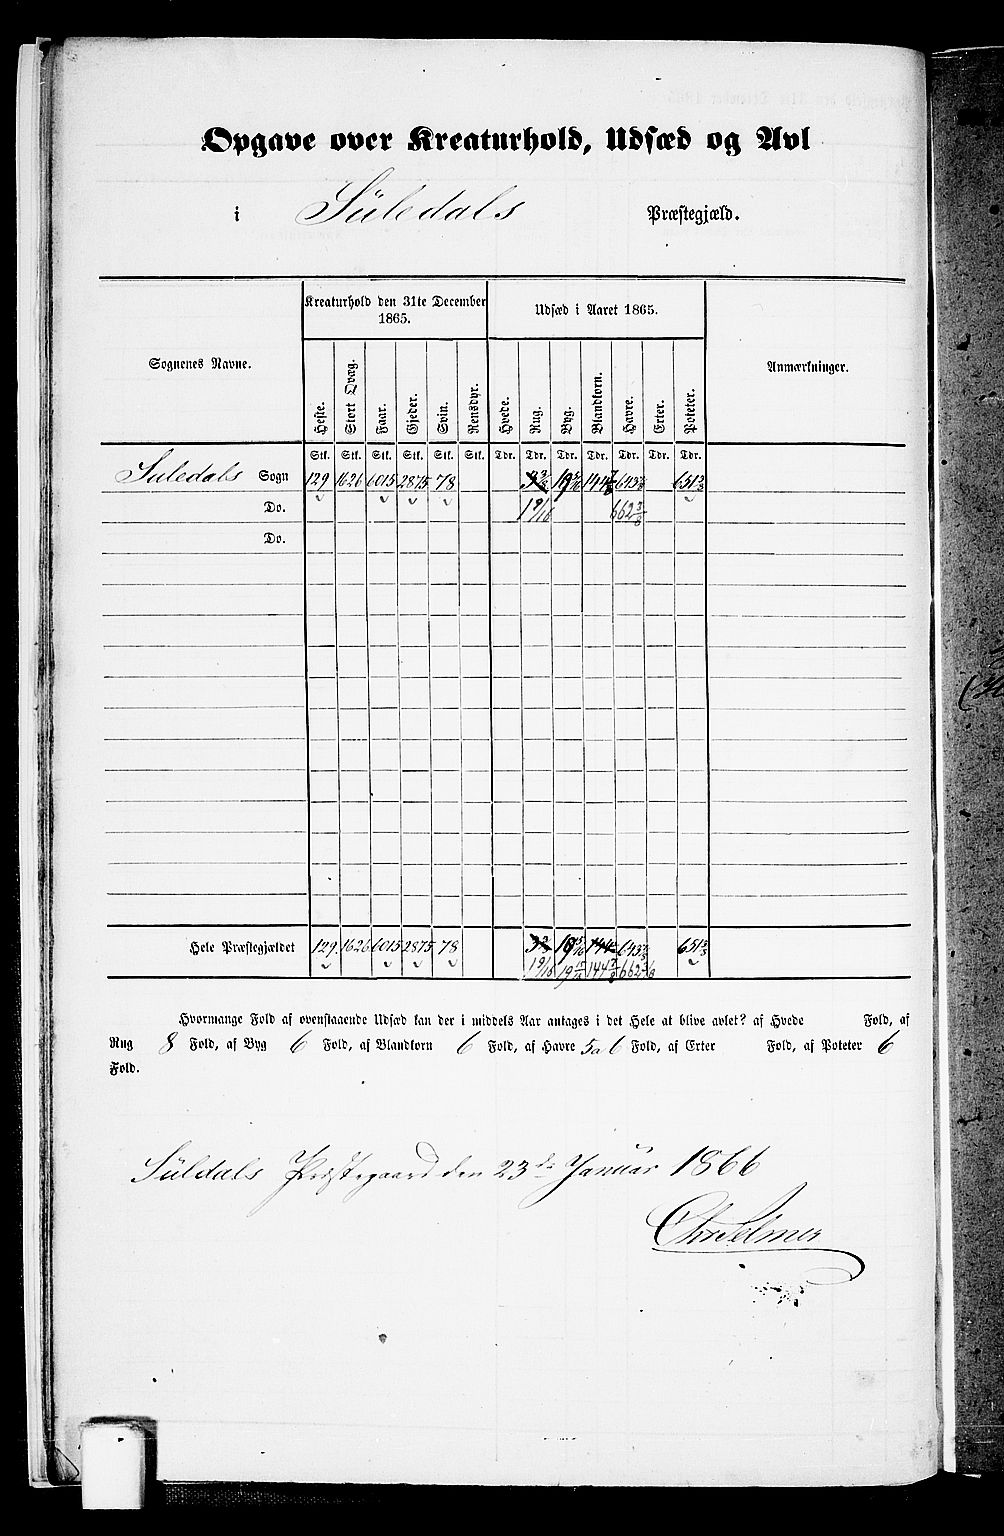 Opgave over Kreaturhold, Udsæd og Avl
i Süledals Præstegjæld.
Kreaturhold den 31te December 1865.
Udsæd i Aaret 1865.
Sognenes Navne.
Anmærkninger.
Heste. Stort Qvæg. Faar. Gjeder. Sviin. Rensdyr. Hvede. Rug. Byg. Blandkorn. Havre. Erter. Poteter.
Stk. Stk. Stk. Stk. Stk. Stk. Tdr. Tdr. Tdr. Tdr. Tdr. Tdr. Tdr.
Suledals Sogn 129 1626 6015 2875 78 144 7/8 651 3/8
Do. 1 9/16 662 3/8
Do.
Hele Præstegjældet 129. 1626 6015 2875 78 651 3/8
1 9/16 19 15/16 144 7/8 662 3/8
Hvormange Fold af ovenstaaende Udsæd kan der i middels Aar antages i det Hele at blive avlet? af Hvede Fold, af
Rug 8 Fold, af Byg 6 Fold, af Blandkorn 6 Fold, af Havre 5 a 6 Fold, af Erter Fold, af Poteter 6
Fold.
Süldals Præstegaard den 23de Januar 1866
Chr Selmer